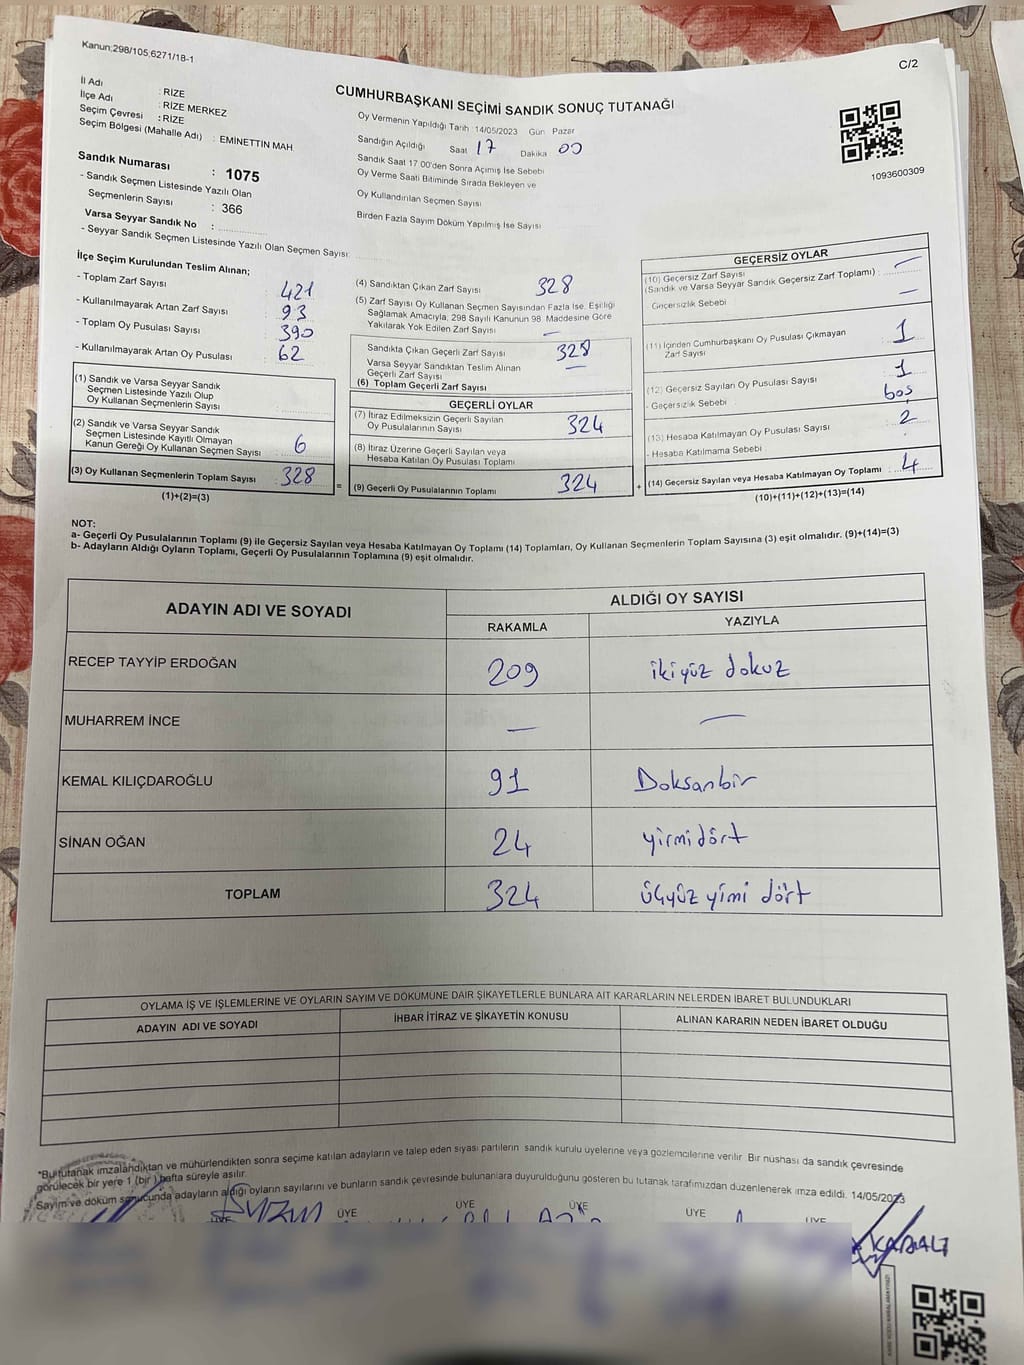 Kanun;298/105,6271/18-1
C/2
CUMHURBAŞKANI SEÇİMİ SANDIK SONUÇ TUTANAĞI
İl Adı : RİZE
İlçe Adı : RİZE MERKEZ
Seçim Çevresi : RİZE
Seçim Bölgesi (Mahalle Adı) : EMİNETTİN MAH
Sandık Numarası : 1075
- Sandık Seçmen Listesinde Yazılı Olan
Seçmenlerin Sayısı : 366
Varsa Seyyar Sandık No :
- Seyyar Sandık Seçmen Listesinde Yazılı Olan Seçmen Sayısı:
Oy Vermenin Yapıldığı Tarih 14/05/2023 Gün Pazar
Sandığın Açıldığı Saat 17 Dakika 00
Sandık Saat 17.00'den Sonra Açımış İse Sebebi
Oy Verme Saati Bitiminde Sırada Bekleyen ve
Oy Kullandırılan Seçmen Sayısı
Birden Fazla Sayım Döküm Yapılmış İse Sayısı
1093600309
İlçe Seçim Kurulundan Teslim Alınan;
- Toplam Zarf Sayısı : 421
- Kullanılmayarak Artan Zarf Sayısı : 93
- Toplam Oy Pusulası Sayısı : 390
- Kullanılmayarak Artan Oy Pusulası : 62
(1) Sandık ve Varsa Seyyar Sandık
Seçmen Listesinde Yazılı Olup
Oy Kullanan Seçmenlerin Sayısı :
(2) Sandık ve Varsa Seyyar Sandık
Seçmen Listesinde Kayıtlı Olmayan
Kanun Gereği Oy Kullanan Seçmen Sayısı : 6
(3) Oy Kullanan Seçmenlerin Toplam Sayısı : 328
(1)+(2)=(3)
(4) Sandıktan Çıkan Zarf Sayısı 328
(5) Zarf Sayısı Oy Kullanan Seçmen Sayısından Fazla İse, Eşitliği
Sağlamak Amacıyla, 298 Sayılı Kanunun 98. Maddesine Göre
Yakılarak Yok Edilen Zarf Sayısı —
Sandıkta Çıkan Geçerli Zarf Sayısı 328
Varsa Seyyar Sandıktan Teslim Alınan
Geçerli Zarf Sayısı —
(6) Toplam Geçerli Zarf Sayısı
GEÇERLİ OYLAR
(7) İtiraz Edilmeksizin Geçerli Sayılan
Oy Pusulalarının Sayısı 324
(8) İtiraz Üzerine Geçerli Sayılan veya
Hesaba Katılan Oy Pusulası Toplamı
= (9) Geçerli Oy Pusulalarının Toplamı 324 +
GEÇERSİZ OYLAR
(10) Geçersiz Zarf Sayısı
(Sandık ve Varsa Seyyar Sandık Geçersiz Zarf Toplamı) : —
Geçersizlik Sebebi —
(11) İçinden Cumhurbaşkanı Oy Pusulası Çıkmayan
Zarf Sayısı 1
(12) Geçersiz Sayılan Oy Pusulası Sayısı 1
- Geçersizlik Sebebi : boş
(13) Hesaba Katılmayan Oy Pusulası Sayısı : 2
- Hesaba Katılmama Sebebi :
(14) Geçersiz Sayılan veya Hesaba Katılmayan Oy Toplamı : 4
(10)+(11)+(12)+(13)=(14)
NOT:
a- Geçerli Oy Pusulalarının Toplamı (9) ile Geçersiz Sayılan veya Hesaba Katılmayan Oy Toplamı (14) Toplamları, Oy Kullanan Seçmenlerin Toplam Sayısına (3) eşit olmalıdır. (9)+(14)=(3)
b- Adayların Aldığı Oyların Toplamı, Geçerli Oy Pusulalarının Toplamına (9) eşit olmalıdır.
ADAYIN ADI VE SOYADI ALDIĞI OY SAYISI
RAKAMLA YAZIYLA
RECEP TAYYİP ERDOĞAN 209 ikiyüz dokuz
MUHARREM İNCE — —
KEMAL KILIÇDAROĞLU 91 Doksanbir
SİNAN OĞAN 24 yirmidört
TOPLAM 324 üçyüz yimi dört
OYLAMA İŞ VE İŞLEMLERİNE VE OYLARIN SAYIM VE DÖKÜMÜNE DAİR ŞİKAYETLERLE BUNLARA AİT KARARLARIN NELERDEN İBARET BULUNDUKLARI
ADAYIN ADI VE SOYADI İHBAR İTİRAZ VE ŞİKAYETİN KONUSU ALINAN KARARIN NEDEN İBARET OLDUĞU
*Bu tutanak imzalandıktan ve mühürlendikten sonra seçime katılan adayların ve talep eden siyası partilerin sandık kurulu üyelerine veya gözlemcilerine verilir. Bir nüshası da sandık çevresinde
görülecek bir yere 1 (bir ) hafta süreyle asılır.
Sayım ve döküm sonucunda adayların aldığı oyların sayılarını ve bunların sandık çevresinde bulunanlara duyurulduğunu gösteren bu tutanak tarafımızdan düzenlenerek imza edildi. 14/05/2023
ÜYE ÜYE ÜYE ÜYE ÜYE ÜYE